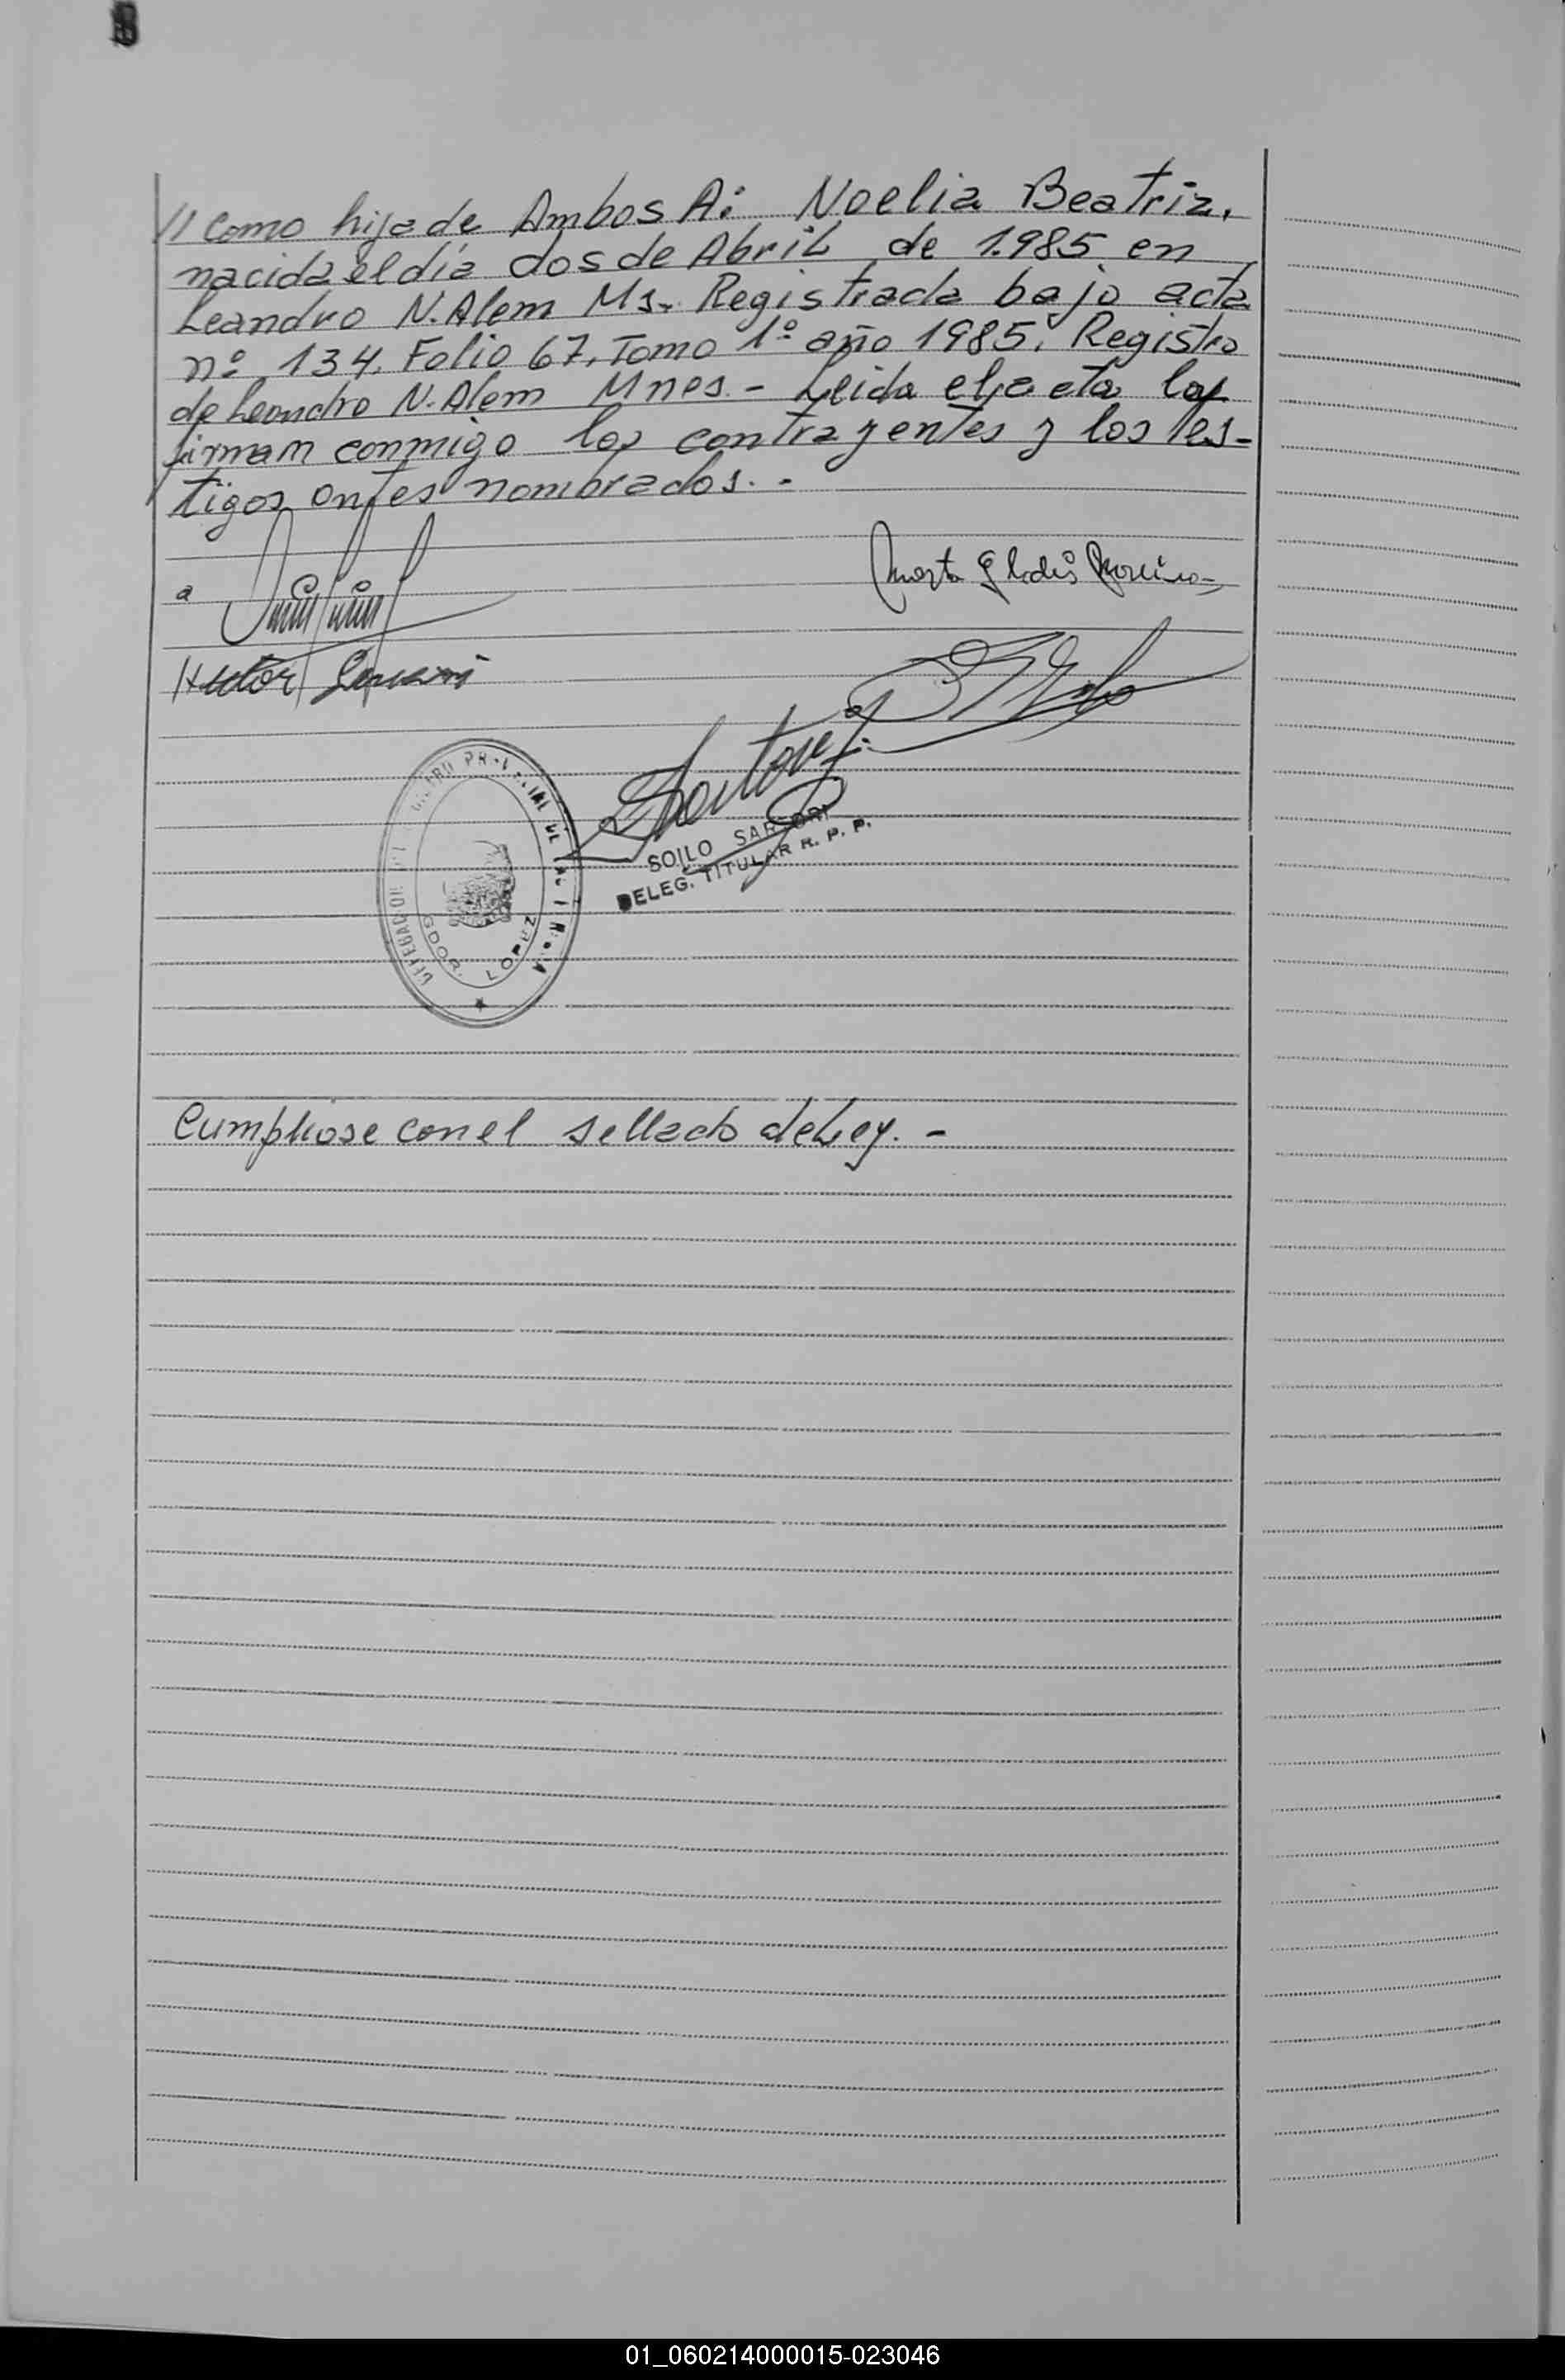 // Como hija de Ambos A: Noelia Beatriz,
nacida el día dos de Abril de 1.985 en
Leandro N. Alem Ms. Registrada bajo acta
nº 134, Folio 67, Tomo 1º año 1985, Registro
de Leandro N. Alem Mnes. - Leida el acta la
firman conmigo los contrayentes y los tes-
tigos antes nombrados. -
a
Marta Gladis
Hector
SOILO SARTORI
DELEG. TITULAR R. P. P.
GDOR. LOPEZ
Cumpliose con el sellado de Ley. -
01_060214000015-023046